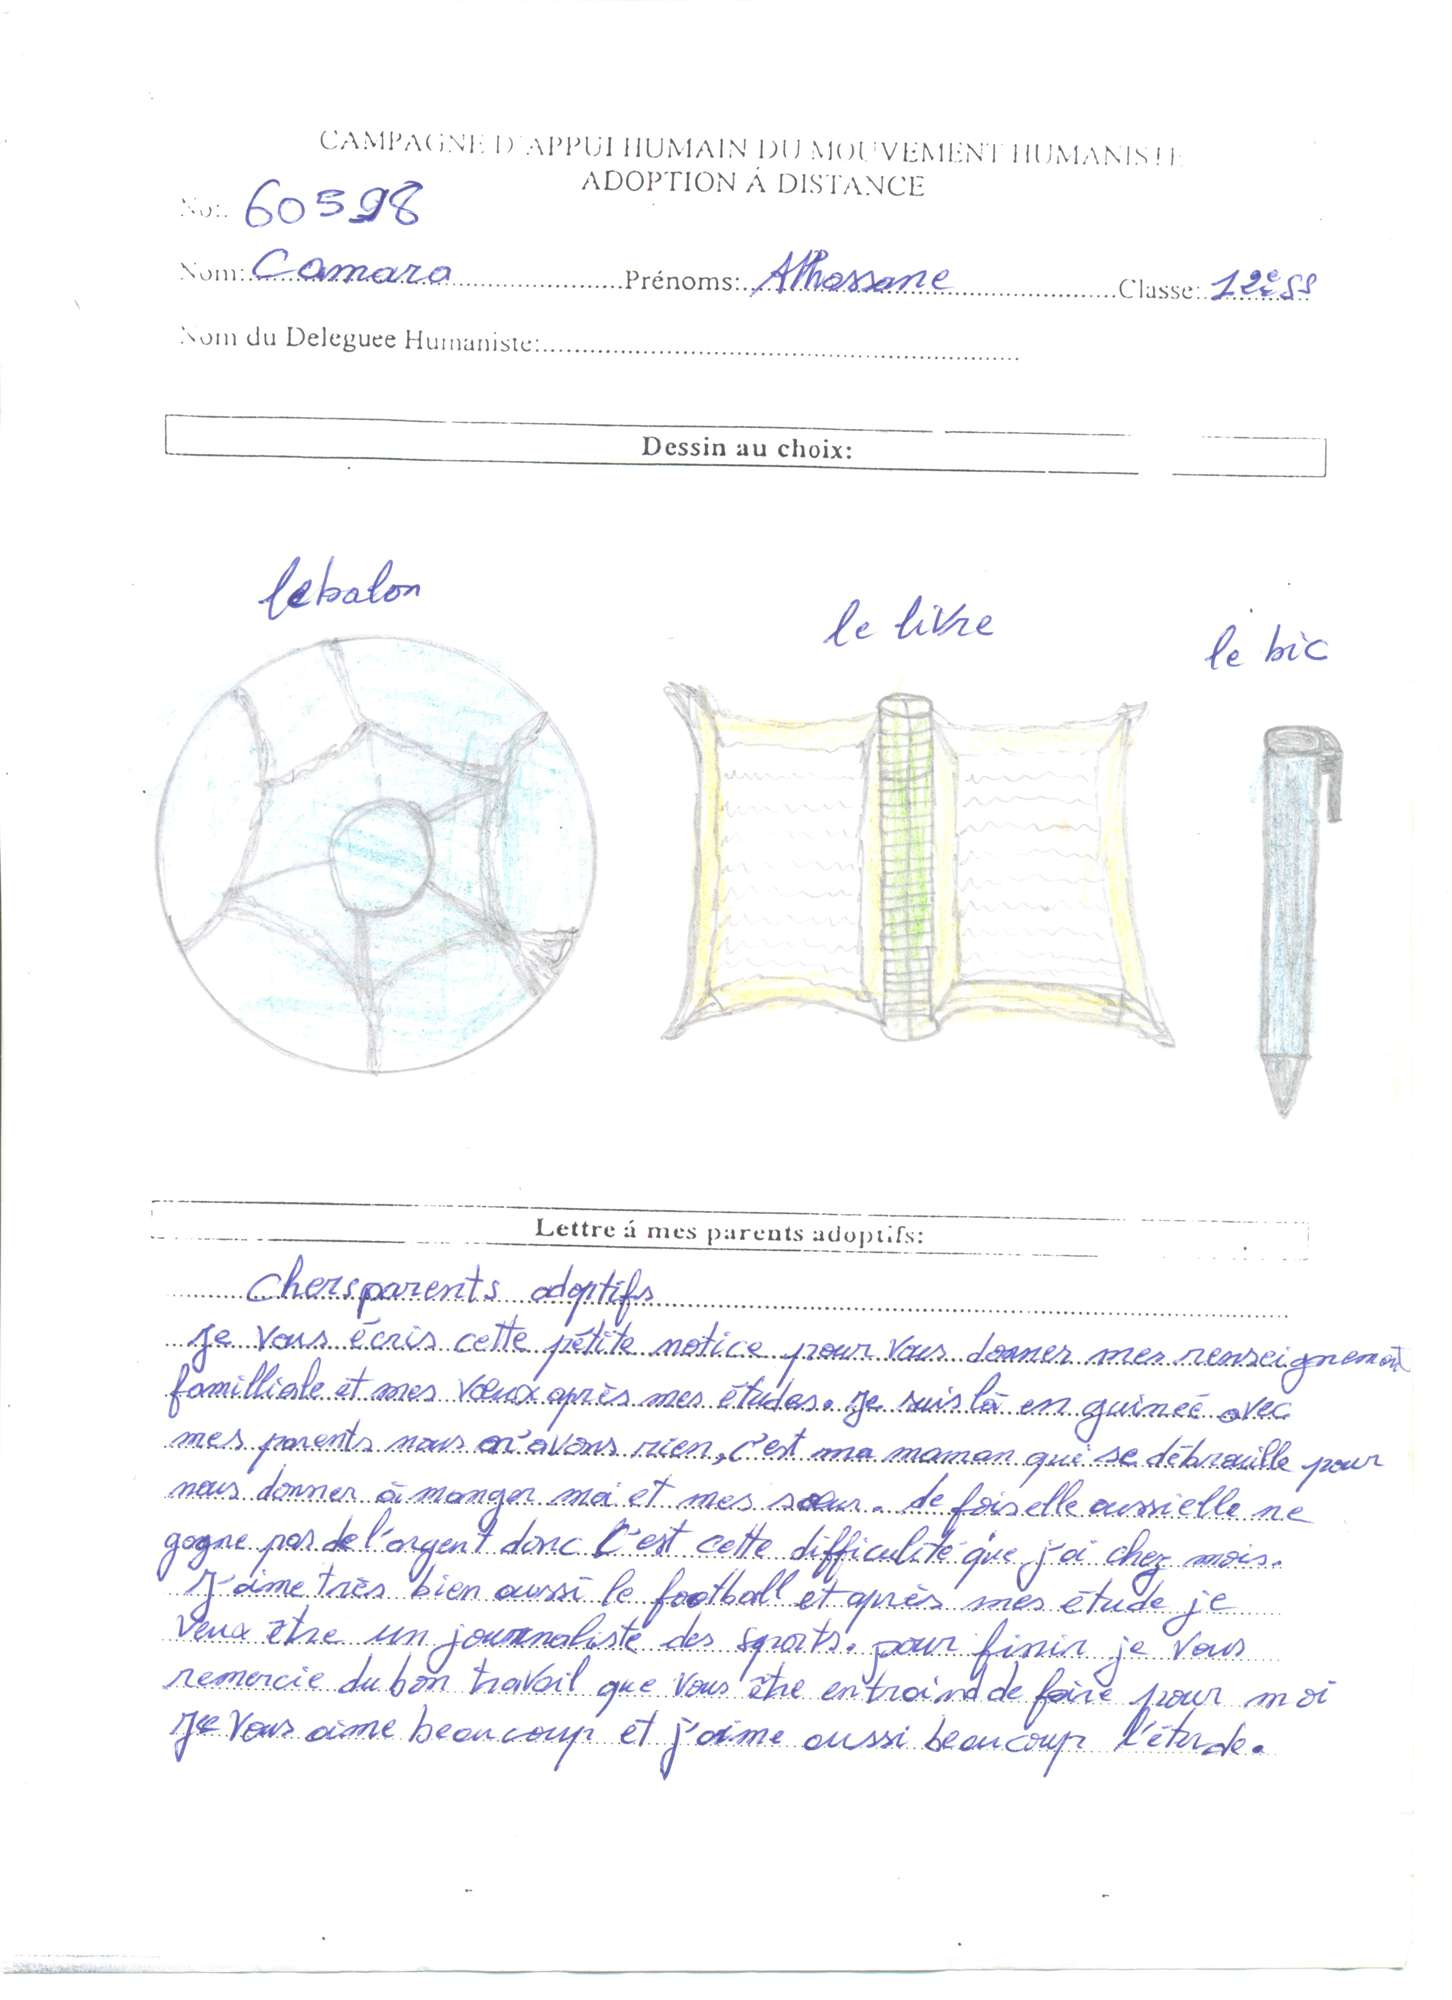 CAMPAGNE D'APPUI HUMAIN DU MOUVEMENT HUMANISTE
ADOPTION Á DISTANCE
No: 60598
Nom: Camara Prénoms: Alhassane Classe: 12e SS
Nom du Deleguee Humaniste:
Dessin au choix:
le balon
le livre
le bic
Lettre á mes parents adoptifs:
Chers parents adoptifs
Je vous écris cette pétite notice pour vous donner mes renseignement
familliale et mes vœux après mes études. Je suis là en guinée avec
mes parents nous n'avons rien, c'est ma maman qui se débrouille pour
nous donner à manger moi et mes sœur. de fois elle aussi elle ne
gagne pas de l'argent donc C'est cette difficulté que j'ai chez mois.
J'aime très bien aussi le football et après mes étude je
veux être un journaliste des sports. pour finir je vous
remercie du bon travail que vous être entraind de faire pour moi
Je vous aime beaucoup et j'aime aussi beaucoup l'étude.